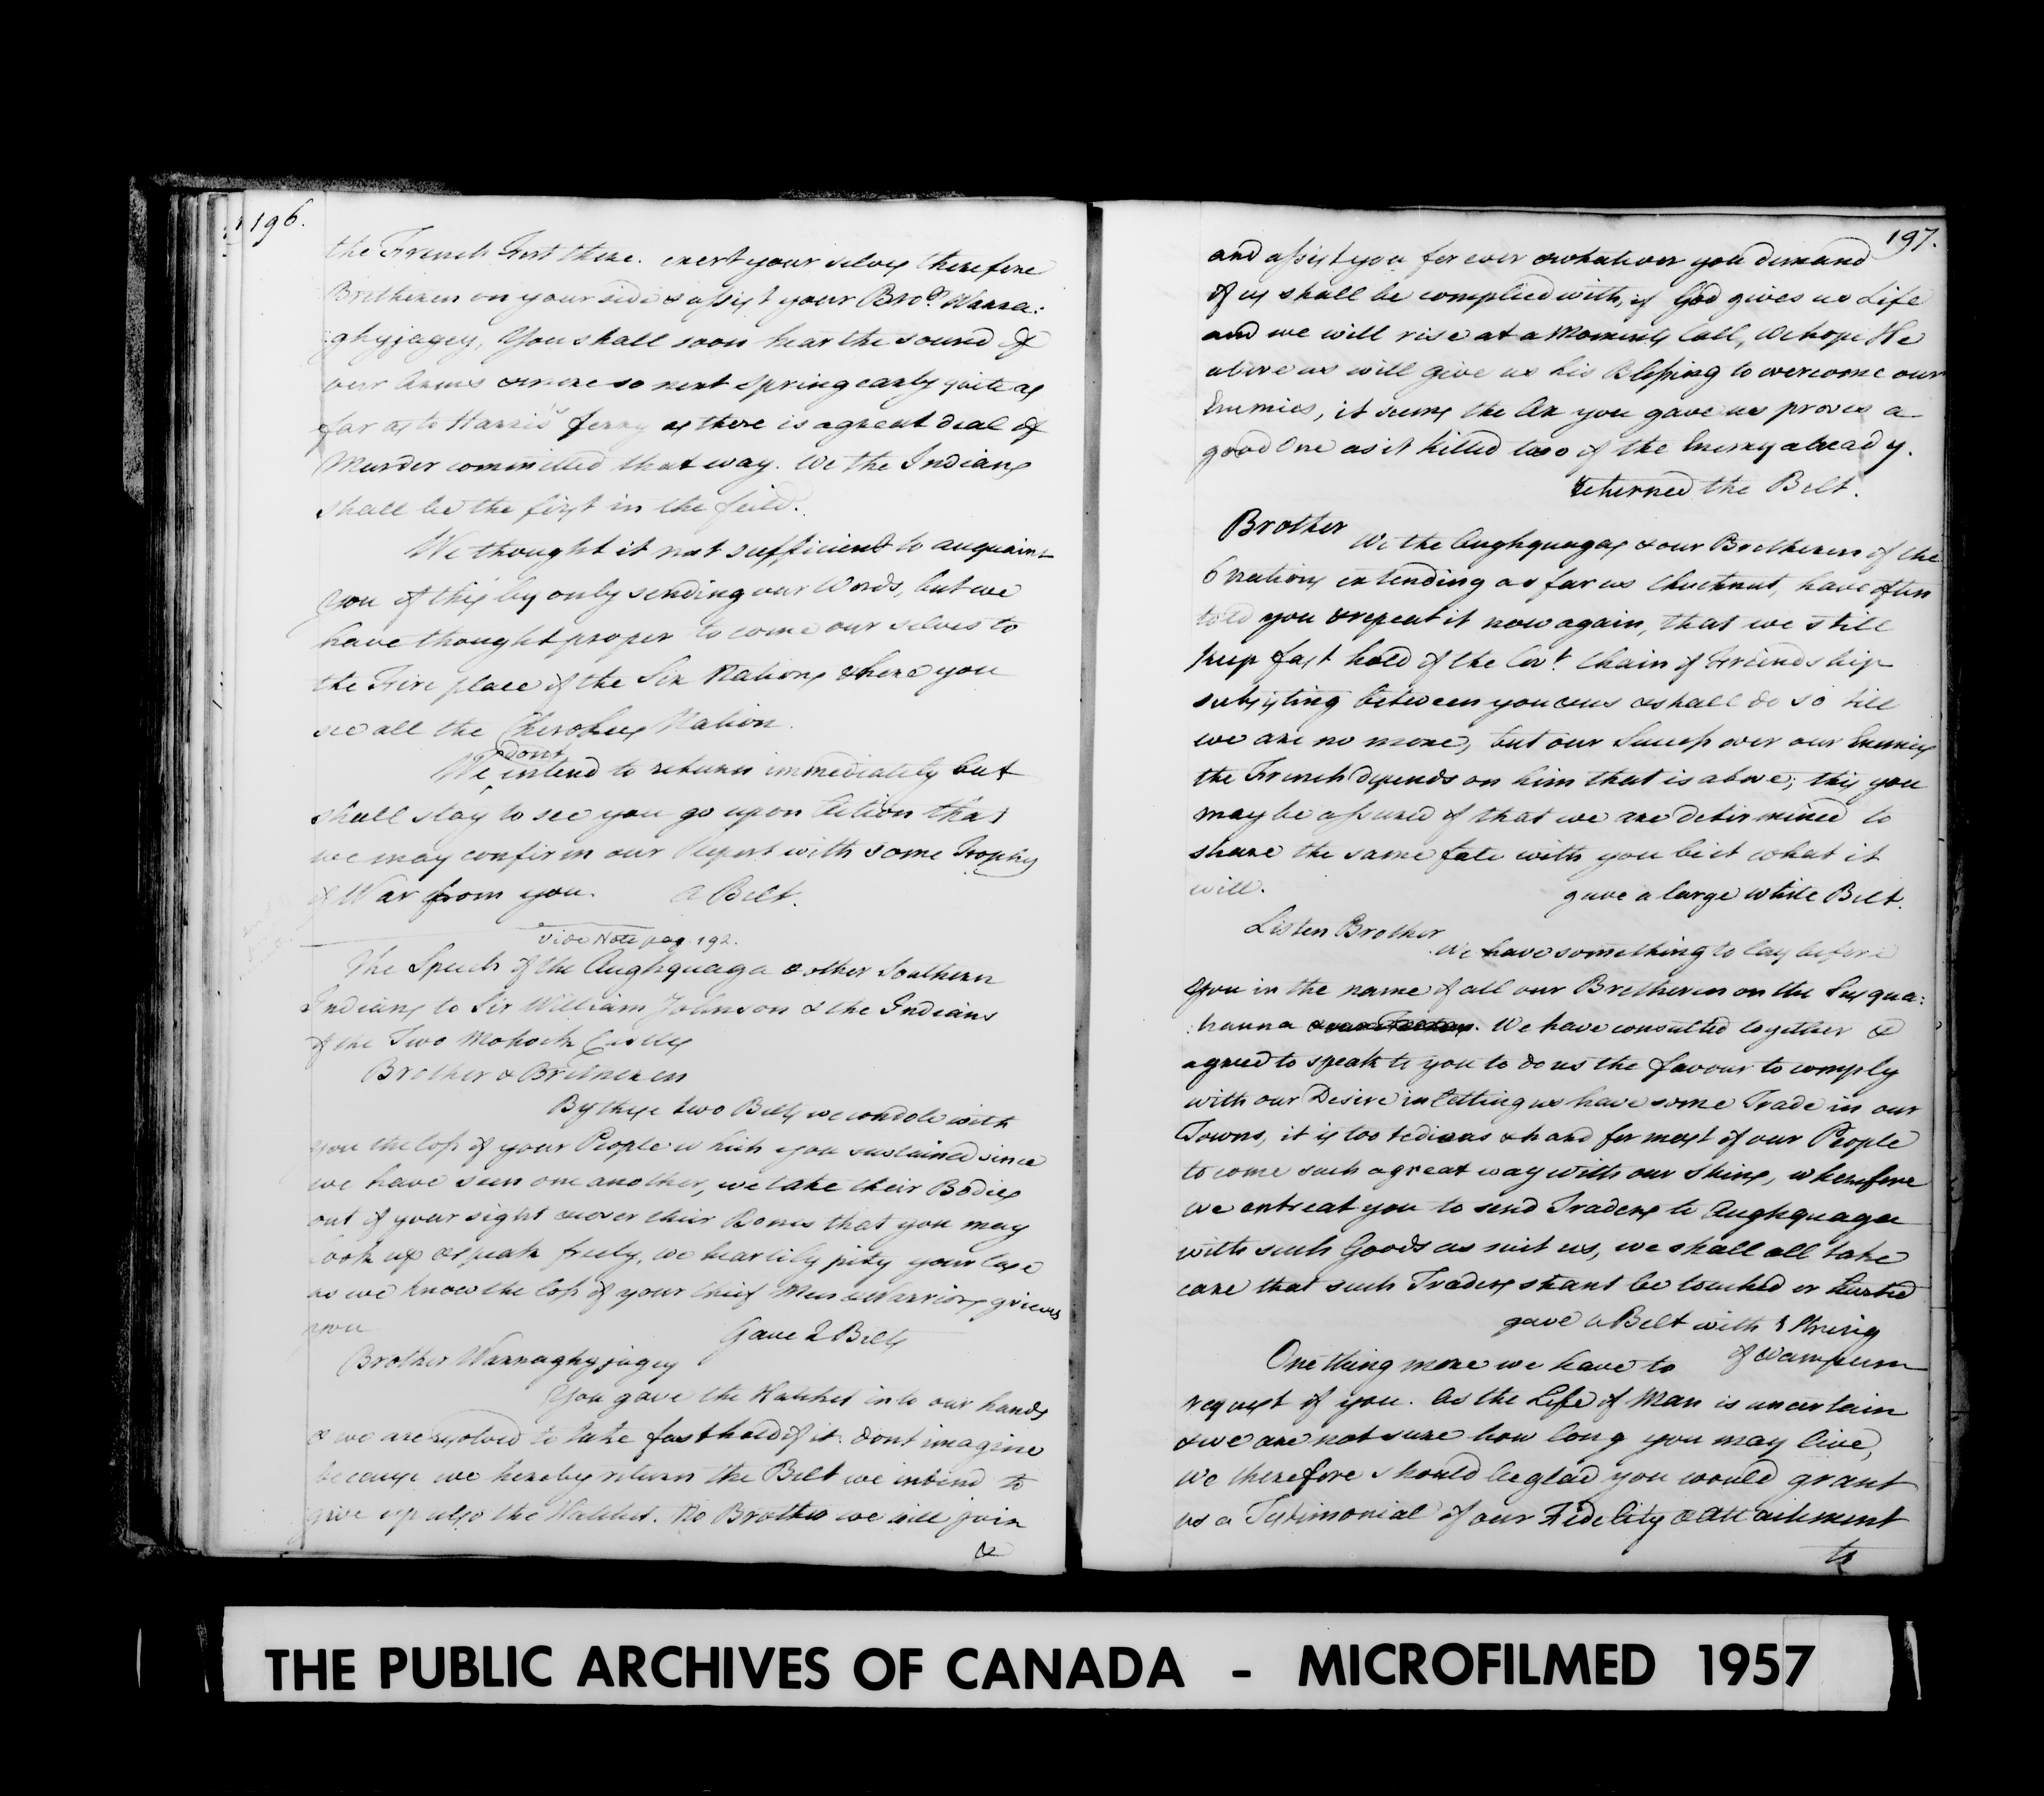 196.
the French Fort there. exert your selves therefore
Bretheren on your side & assist your Bror. Warra:
:ghyjagey, You shall soon hear the sound of
our Arms & more so next Spring early quite as
far as to Harris's ferry as there is a great deal of
Murder committed that way. We the Indians
shall be the first in the feild.
We thought it not sufficient to acquaint
you of this by only sending our Words, but we
have thought proper to come our selves to
the Fire place of the Six Nations & here you
see all the Cherokees Nation.
dont
We intend to return immediately but
shall stay to see you go upon Action that
we may confirm our Report with some Trophy
of War from you. a Belt.
Vide Note pag. 192.
The Speech of the Aughquaga & other Southern
Indians to Sir William Johnson & the Indians
of the Two Mohock Castles
Brother & Bretheren
By these two Belts we condole with
you the loss of your People which you sustained since
we have seen one another, we take their Bodies
out of your sight & cover their Bones that you may
look up & speak freely, we heartily pity your Case
as we know the loss of your Chief Men & Warriors grieves
you
Gave 2 Belts
Brother Warraghyjagey
You gave the Hatchet into our hands
& we are resolved to take fast hold of it. dont imagine
because we hereby return the Belt we intend to
give up also the Hatchet. No Brother we will join
&
197.
and assist you for ever & whatever you demand
of us shall be complied with, if God gives us Life
and we will rise at a Moments Call, We hope He
above us will give us his Blessing to overcome our
Enemies, it seems the Ax you gave us proves a
good One as it killed two of the Enemy already.
returned the Belt.
Brother
We the Aughquagas & our Bretheren of the
6 Nations extending as far as Chucknut, have often
told you & repeat it now again, that we still
keep fast hold of the Covt. Chain of Freindship
subsisting between you & us & shall do so till
we are no more, but our Success over our Enemies
the French depends on him that is above; this you
may be assured of that we are determined to
share the same fate with you be it what it
will.
gave a large White Belt.
Listen Brother
We have something to lay before
you in the name of all our Bretheren on the Susqua:
:hanna . We have consulted together &
agreed to speak to you to do us the favour to comply
with our Desire in letting us have some Trade in our
Towns, it is too tedious & hard for most of our People
to come such a great way with our Skins, wherefore
we entreat you to send Traders to Aughquaga
with such Goods as suit us, we shall all take
care that such Traders shant be touched or hurted
gave a Belt with String
of Wampum
One thing more we have to
request of you. As the Life of Man is uncertain
& we are not sure how long you may live,
We therefore should be glad you would grant
us a Testimonial of our Fidelity & Attachment
to
THE PUBLIC ARCHIVES OF CANADA - MICROFILMED 1957